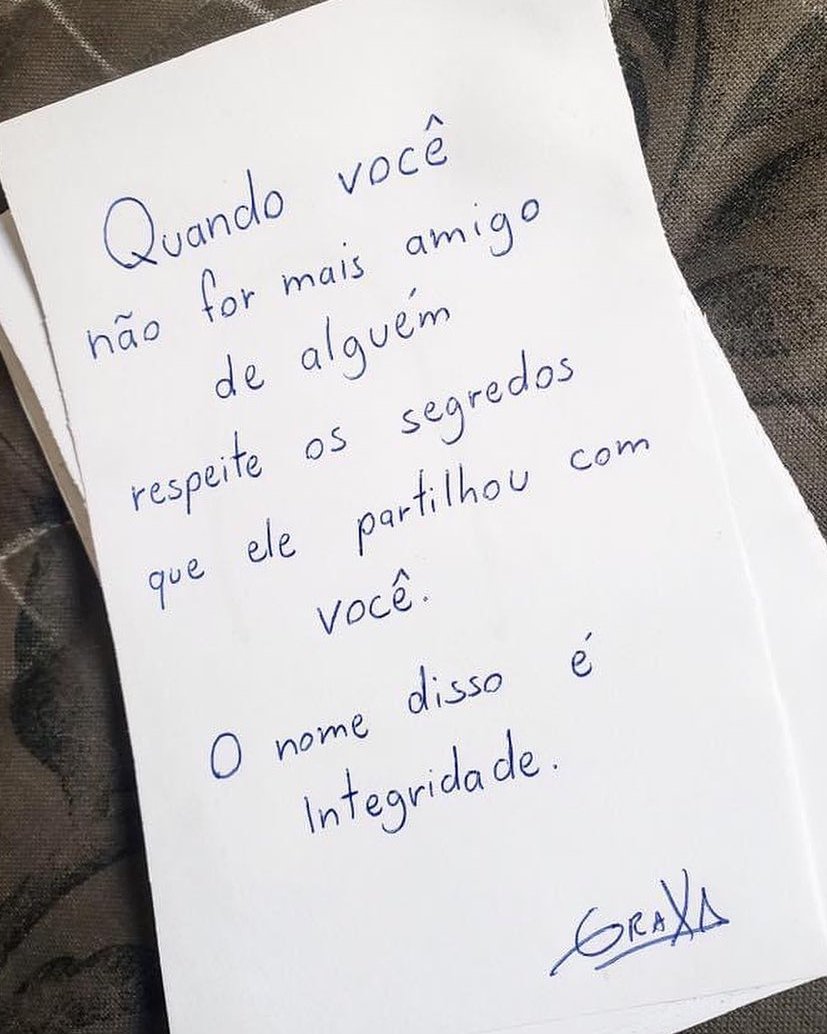 Quando você
não for mais amigo
de alguém
respeite os segredos
que ele partilhou com
você.
O nome disso é
Integridade.
GRAXA